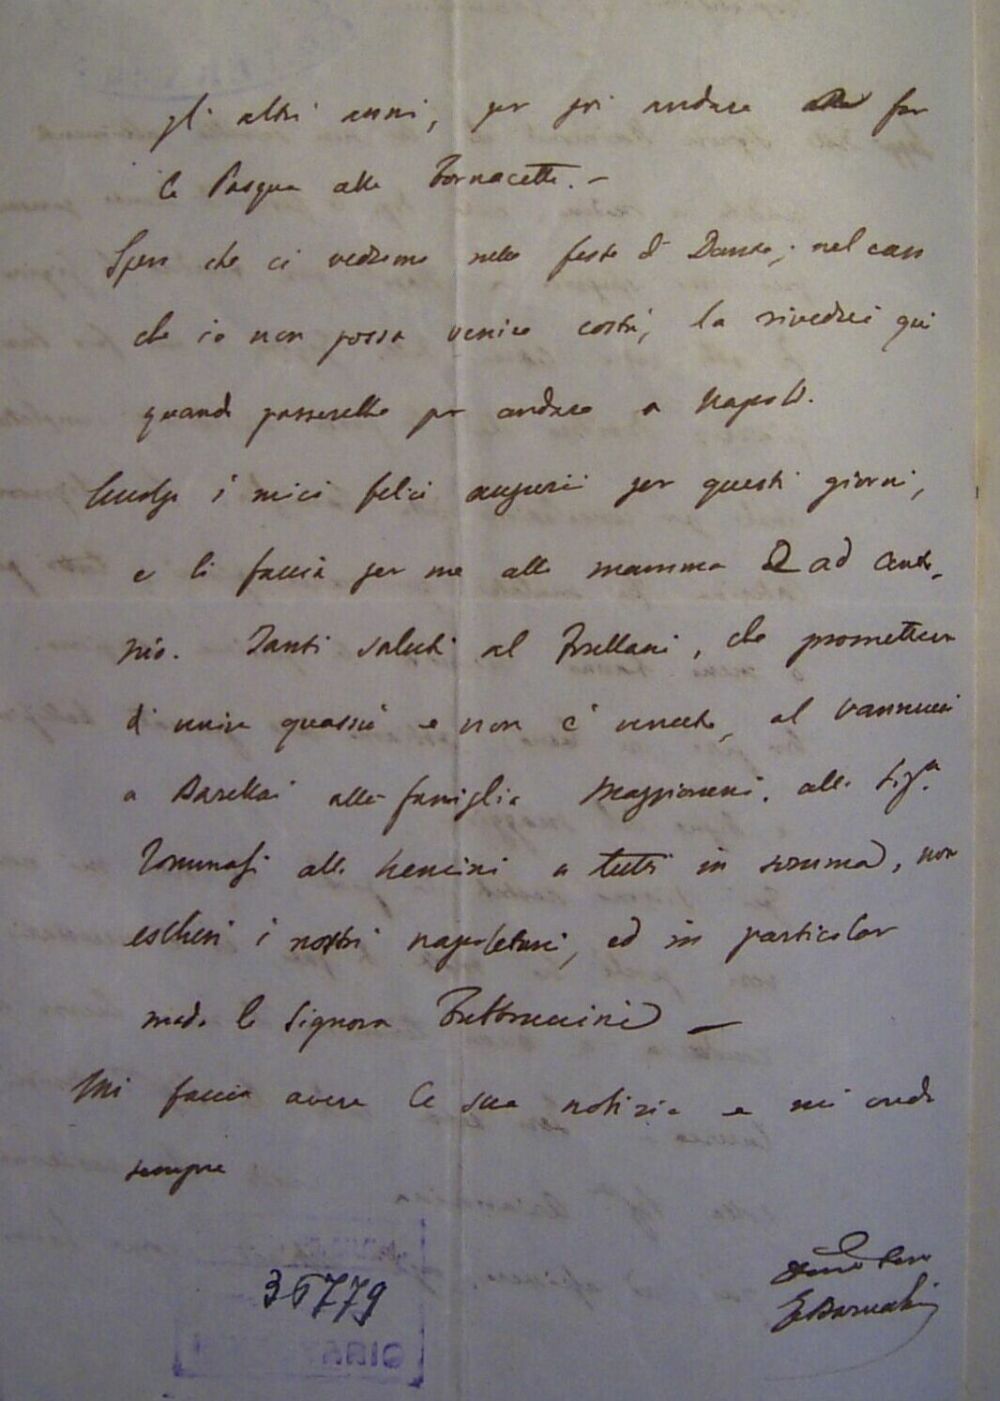 gli altri anni, per poi andare a far
la Pasqua alle Fornacette. –
Spero che ci vedremo nelle feste di Dante; nel caso
che io non possa venire costì, la rivedrei qui
quando passerebbe per andare a Napoli.
Accolga i miei felici augurii per questi giorni,
e li faccia per me alla mamma e ad Anto-
nio. Tanti saluti al , che prometteva
di venire quassù e non è venuto, al Vannucci
a Barellai alla famiglia Maggiorani, alla Sig.ra
Tommasi alla Nencini a tutti in somma, non
esclusi i nostri napoletani, ed in particolar
modo la Signora –
Mi faccia avere le sue notizie e mi creda
sempre
36779